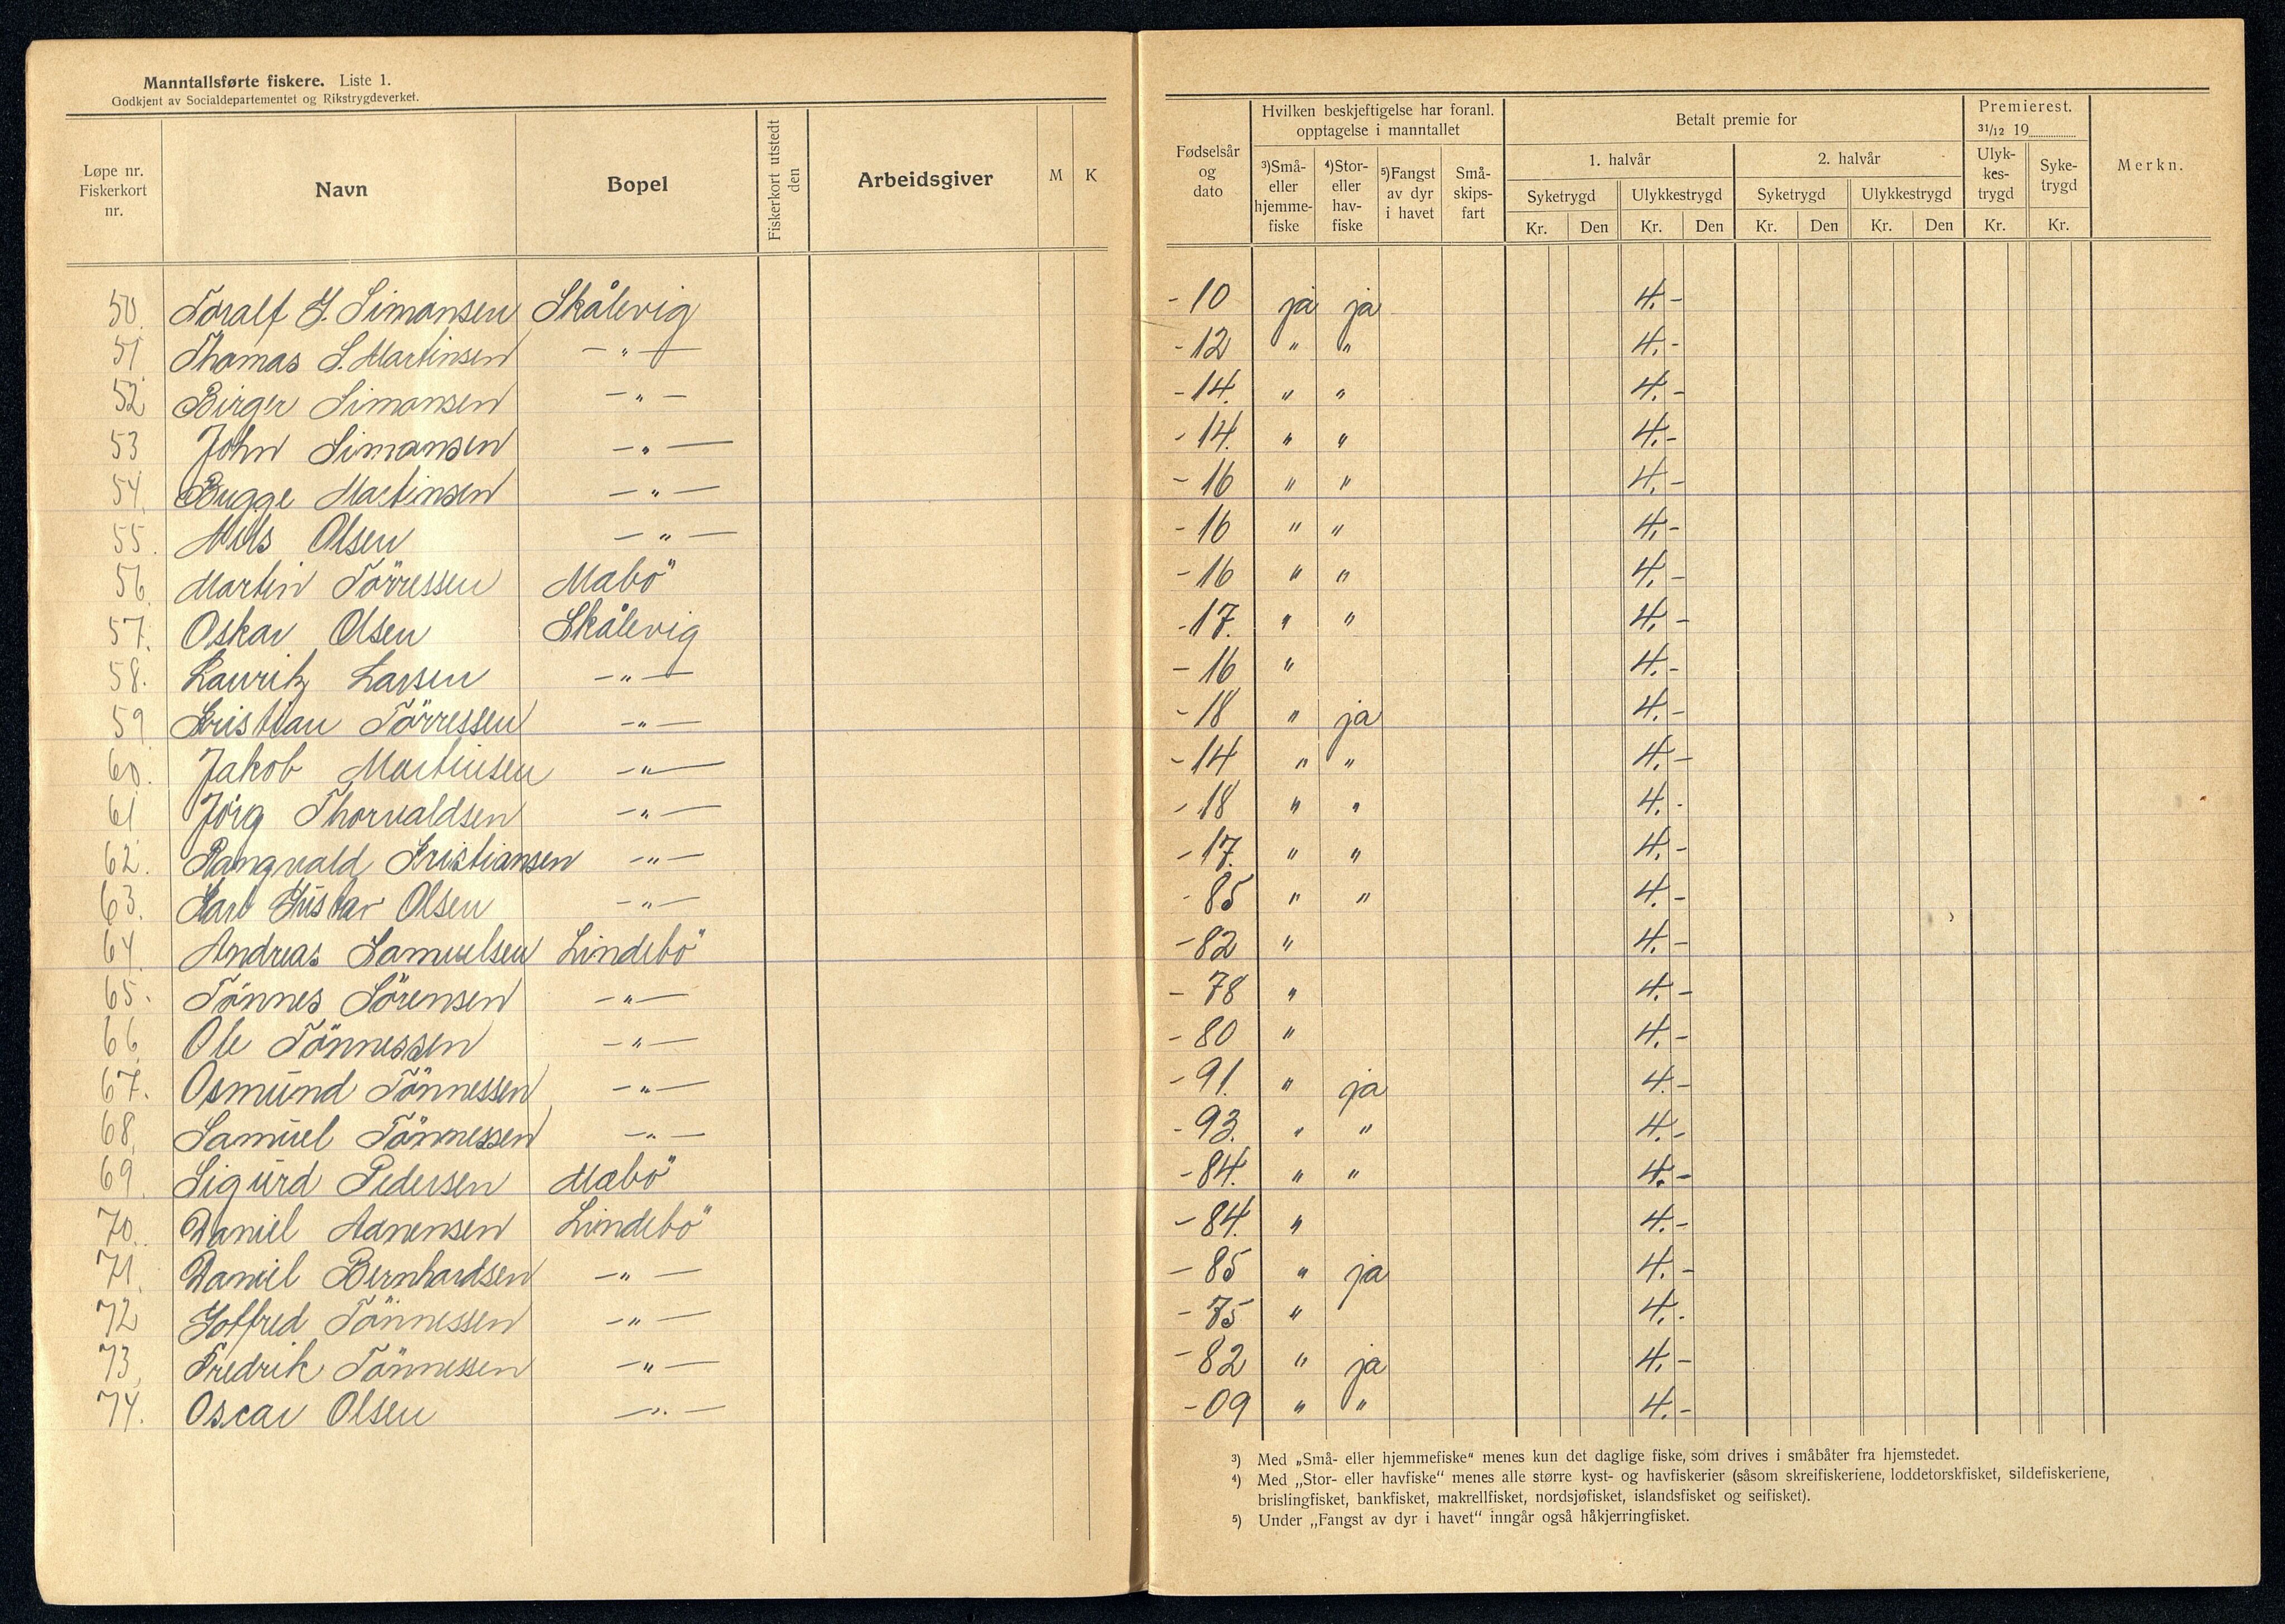 Manntallsførte fiskere. Liste 1.
Godkjent av Socialdepartementet og Rikstrygdeverket.
Løpe nr. Fiskerkort nr. Navn Bopel Fiskerkort utstedt den Arbeidsgiver M K Fødselsår og dato Hvilken beskjeftigelse har foranl. opptagelse i manntallet Betalt premie for Premierest. 31/12 19 Merkn.
³)Små- eller hjemme- fiske ⁴)Stor- eller hav- fiske ⁵)Fangst av dyr i havet Små- skips- fart 1. halvår 2. halvår Ulyk- kes- trygd Syke- trygd
Syketrygd Ulykkestrygd Syketrygd Ulykkestrygd
Kr. Den Kr. Den Kr. Den Kr. Den Kr. Kr.
50. Toralf G. Simonsen Skålevig -10 ja ja 4.-
51. Thomas S. Martinsen -"- -12 " " 4.-
52 Birger Simonsen -"- -14. " " 4.-
53 John Simonsen -"- -14. " " 4.-
54. Bugge Martinsen -"- -16 " " 4.-
55. Nils Olsen -"- -16 " " 4.-
56. Martin Törressen Mabö -16 " " 4.-
57. Oskar Olsen Skålevig -17. " " 4.-
58. Lauritz Larsen -"- -16 " 4.-
59 Kristian Törressen -"- -18 " ja 4.-
60. Jakob Martinsen -"- -14 " " 4.-
61 Jörg Thorvaldsen -"- -18 " " 4.-
62. Rangvald Kristiansen -"- -17. " " 4.-
63. Karl Gustav Olsen -"- -85 " " 4.-
64. Andreas Samuelsen Lindebö -82 " 4.-
65. Tönnes Sörensen -"- -78 " 4.-
66. Ole Tönnessen -"- -80 " 4.-
67. Osmund Tönnessen -"- -91. " ja 4.-
68. Samuel Tönnessen -"- -93. " " 4.-
69. Sigurd Pedersen Mabö -84. " " 4.-
70. Daniel Adnensen Lindebö -84. " 4.-
71. Daniel Bernhardsen -"- -85 " ja 4.-
72 Gotfred Tönnessen -"- -75 " 4.-
73. Fredrik Tönnessen -"- -82 " ja 4.-
74. Oscar Olsen -"- -09 " " 4.-
³) Med „Små- eller hjemmefiske“ menes kun det daglige fiske, som drives i småbåter fra hjemstedet.
⁴) Med „Stor- eller havfiske“ menes alle større kyst- og havfiskerier (såsom skreifiskeriene, loddetorskfisket, sildefiskeriene,
brislingfisket, bankfisket, makrellfisket, nordsjøfisket, islandsfisket og seifisket).
⁵) Under „Fangst av dyr i havet“ inngår også håkjerringfisket.